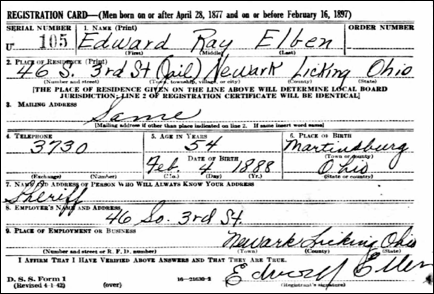 REGISTRATION CARD—(Men born on or after April 28, 1877 and on or before February 16, 1897)
SERIAL NUMBER 1. NAME (Print) ORDER NUMBER
U 105 Edward Ray Elben
(First) (Middle) (Last)
2. PLACE OF RESIDENCE (Print)
46 S. 3rd St (Jail) Newark Licking Ohio
(Number and street) (Town, township, village, or city) (County) (State)
[THE PLACE OF RESIDENCE GIVEN ON THE LINE ABOVE WILL DETERMINE LOCAL BOARD
JURISDICTION; LINE 2 OF REGISTRATION CERTIFICATE WILL BE IDENTICAL]
3. MAILING ADDRESS
Same
[Mailing address if other than place indicated on line 2. If same insert word same]
4. TELEPHONE 5. AGE IN YEARS 6. PLACE OF BIRTH
3730 54 Martinsburg
DATE OF BIRTH (Town or county)
Feb. 4 1888 Ohio
(Exchange) (Number) (Mo.) (Day) (Yr.) (State or country)
7. NAME AND ADDRESS OF PERSON WHO WILL ALWAYS KNOW YOUR ADDRESS
Sheriff
8. EMPLOYER'S NAME AND ADDRESS
46 So. 3rd St
9. PLACE OF EMPLOYMENT OR BUSINESS
Newark Licking Ohio
(Number and street or R. F. D. number) (Town) (County) (State)
I AFFIRM THAT I HAVE VERIFIED ABOVE ANSWERS AND THAT THEY ARE TRUE.
D. S. S. Form 1
(Revised 4-1-42) (over) (Registrant's signature)